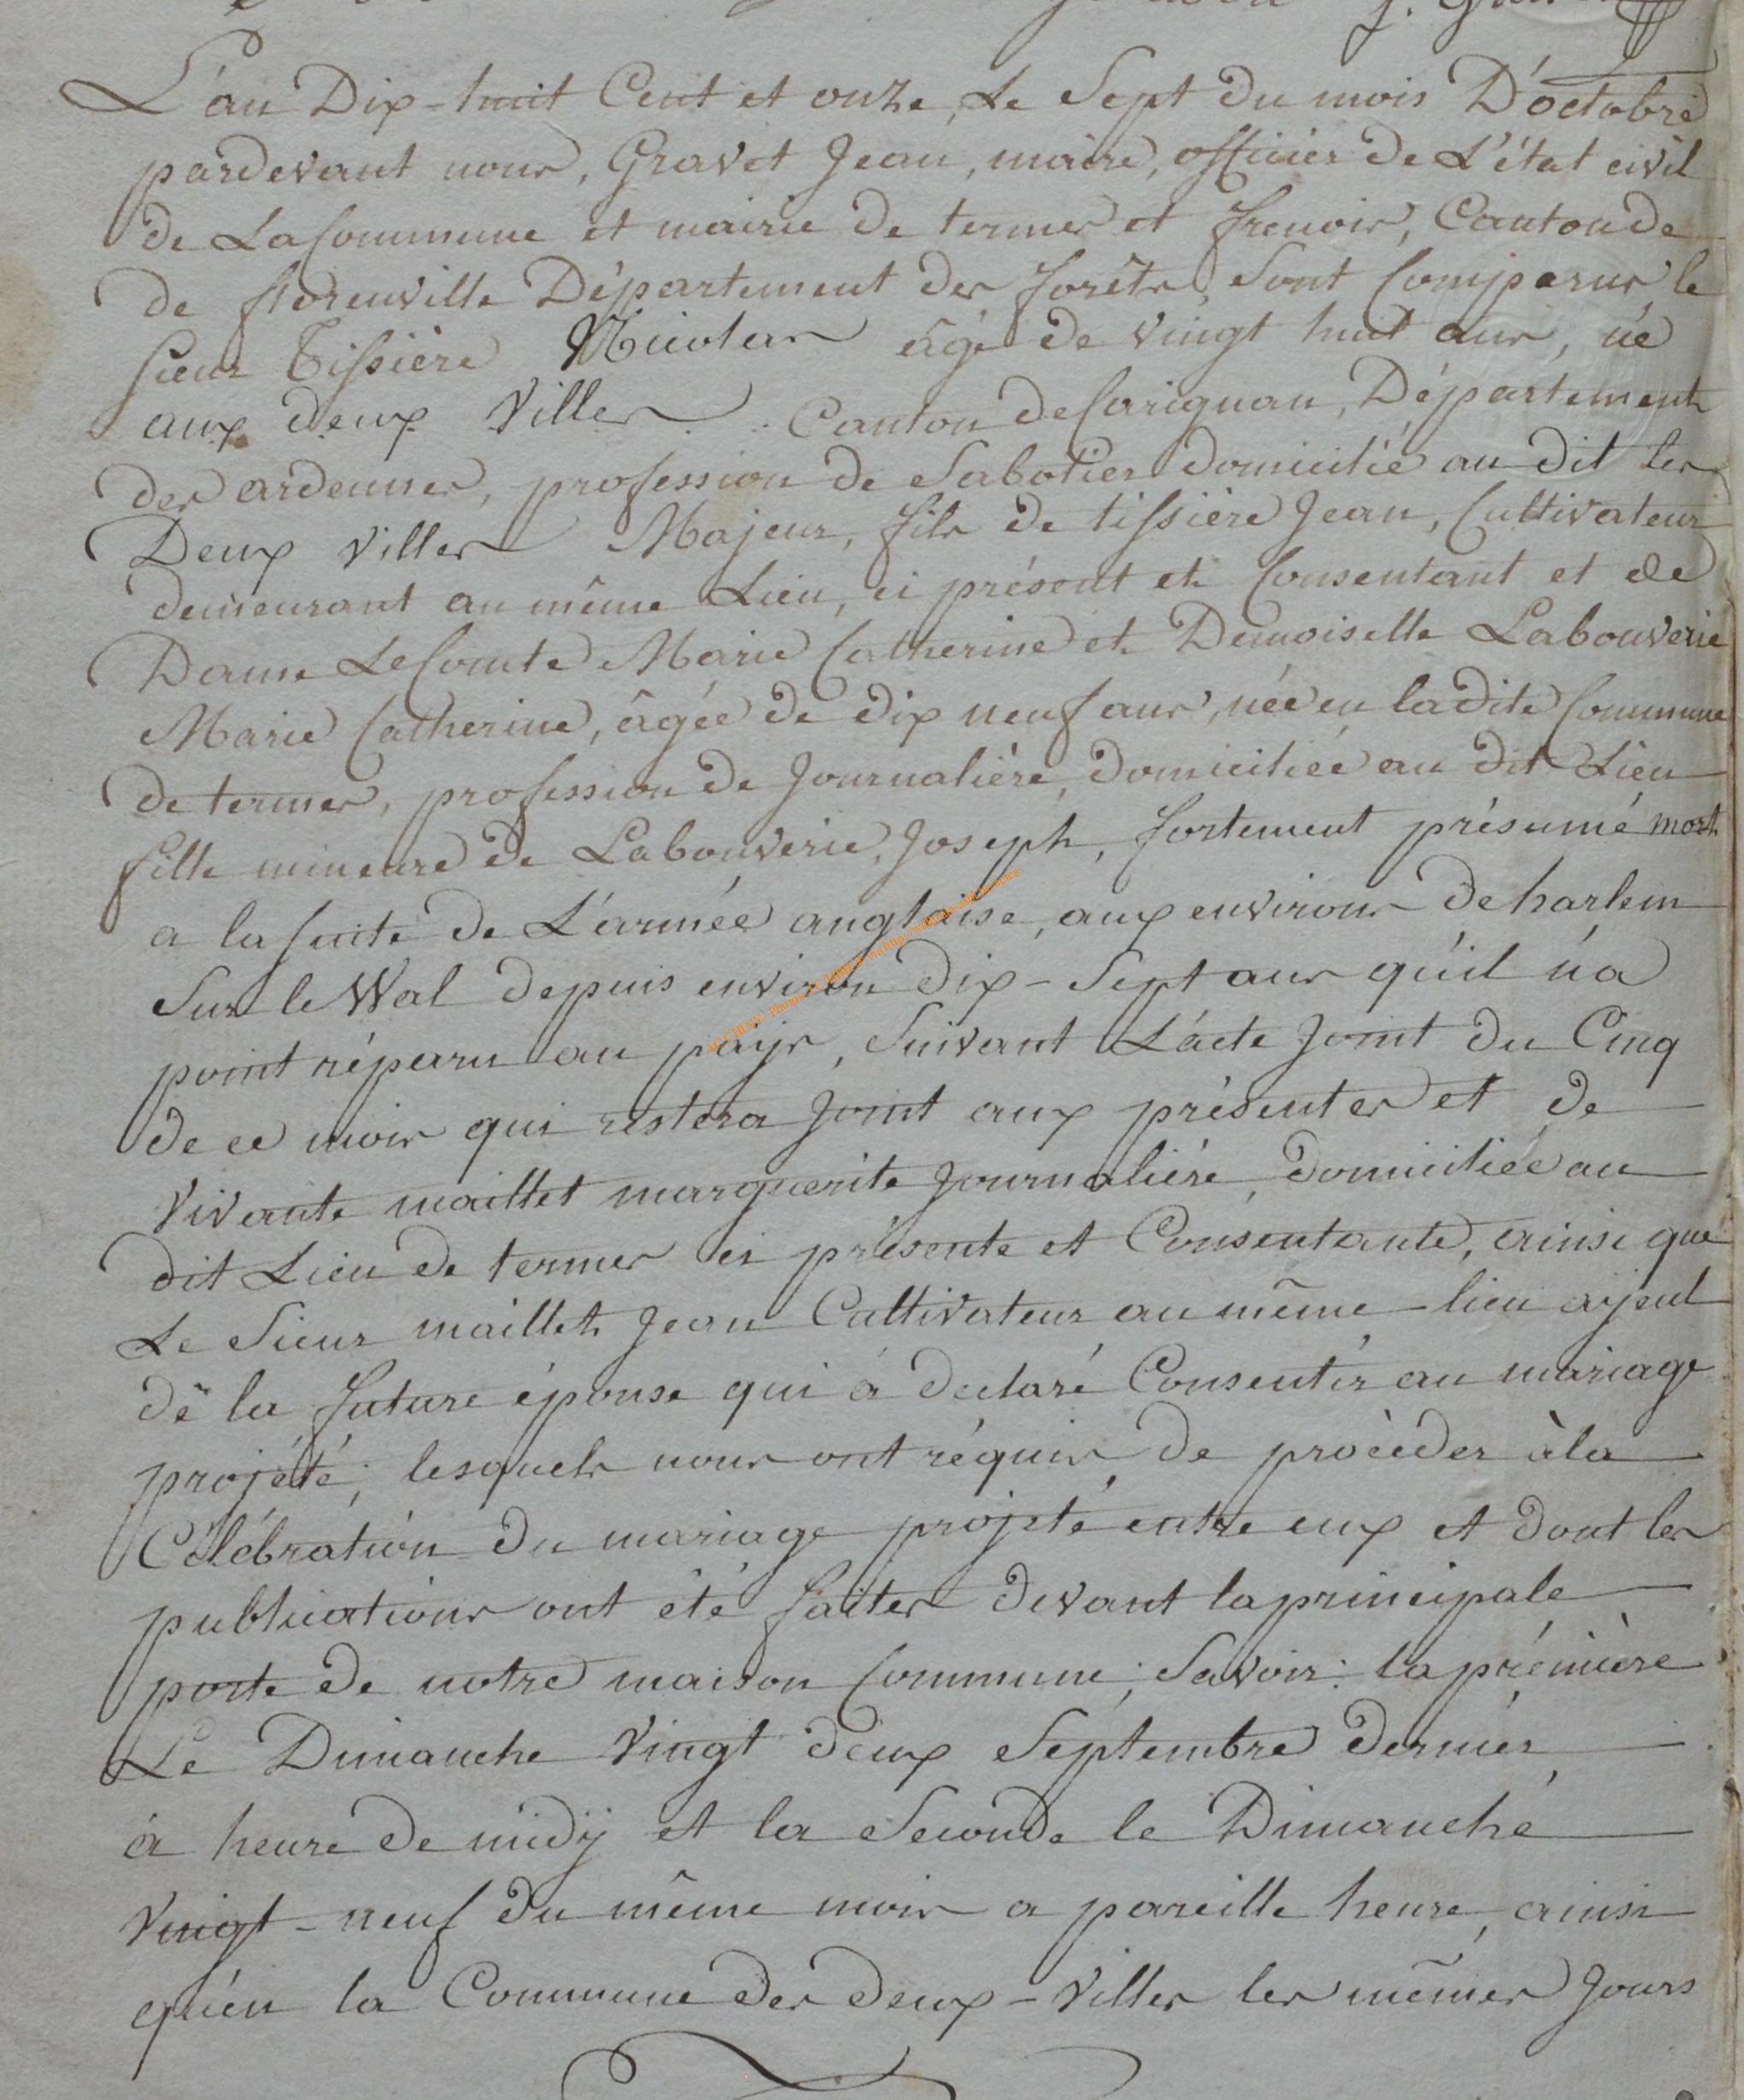 L'an Dix-huit Cent et onze, Le Sept du mois D'octobre
pardevant nous, Gravet Jean, maire, officier de L'état civil
de La Commune et mairie de termes et frenois, Canton de
de florenville Département des forêts, sont Comparus le
sieur Tissière Nicolas âgé de vingt huit ans, né
aux deux Villes Canton de Carignan, Département
des ardennes, profession de Sabotier domicilié au dit les
Deux Villes Majeur, fils de tissière Jean, Cultivateur
demeurant au même Lieu, ci présent et Consentant et de
Dame LeComte Marie Catherine et Demoiselle Labouverie
Marie Catherine, âgée de dix neuf ans, née en ladite Commune
de termes, profession de Journalière, domiciliée au dit Lieu
fille mineure de Labouverie, Joseph, fortement présumé mort
a la suite de L'armée anglaise, aux environs de harlem
Sur le Wal depuis environ dix-Sept ans qu'il n'a
point réparu au païs, Suivant L'acte Joint du Cinq
de ce mois qui restera Joint aux présentes et de
Vivante maillet marguerite Journalière, domiciliée au
dit Lieu de termes ci présente et Consentante, ainsi que
Le Sieur maillet Jean Cultivateur au même-lieu ayeul
de la future épouse qui a déclaré Consentir au mariage
projété; lesquels nous ont réquis de procéder à la
Célébration du mariage projeté entre eux et dont les
publications ont été faites devant la principale
porte de notre maison Commune; Savoir: la prémière
Le Dimanche Vingt deux Septembre dernier
à heure de midÿ et la Seconde le Dimanche
Vingt-neuf du même mois a pareille heure, ainsi
qu'en la Commune des deux-Villes les mêmes Jours